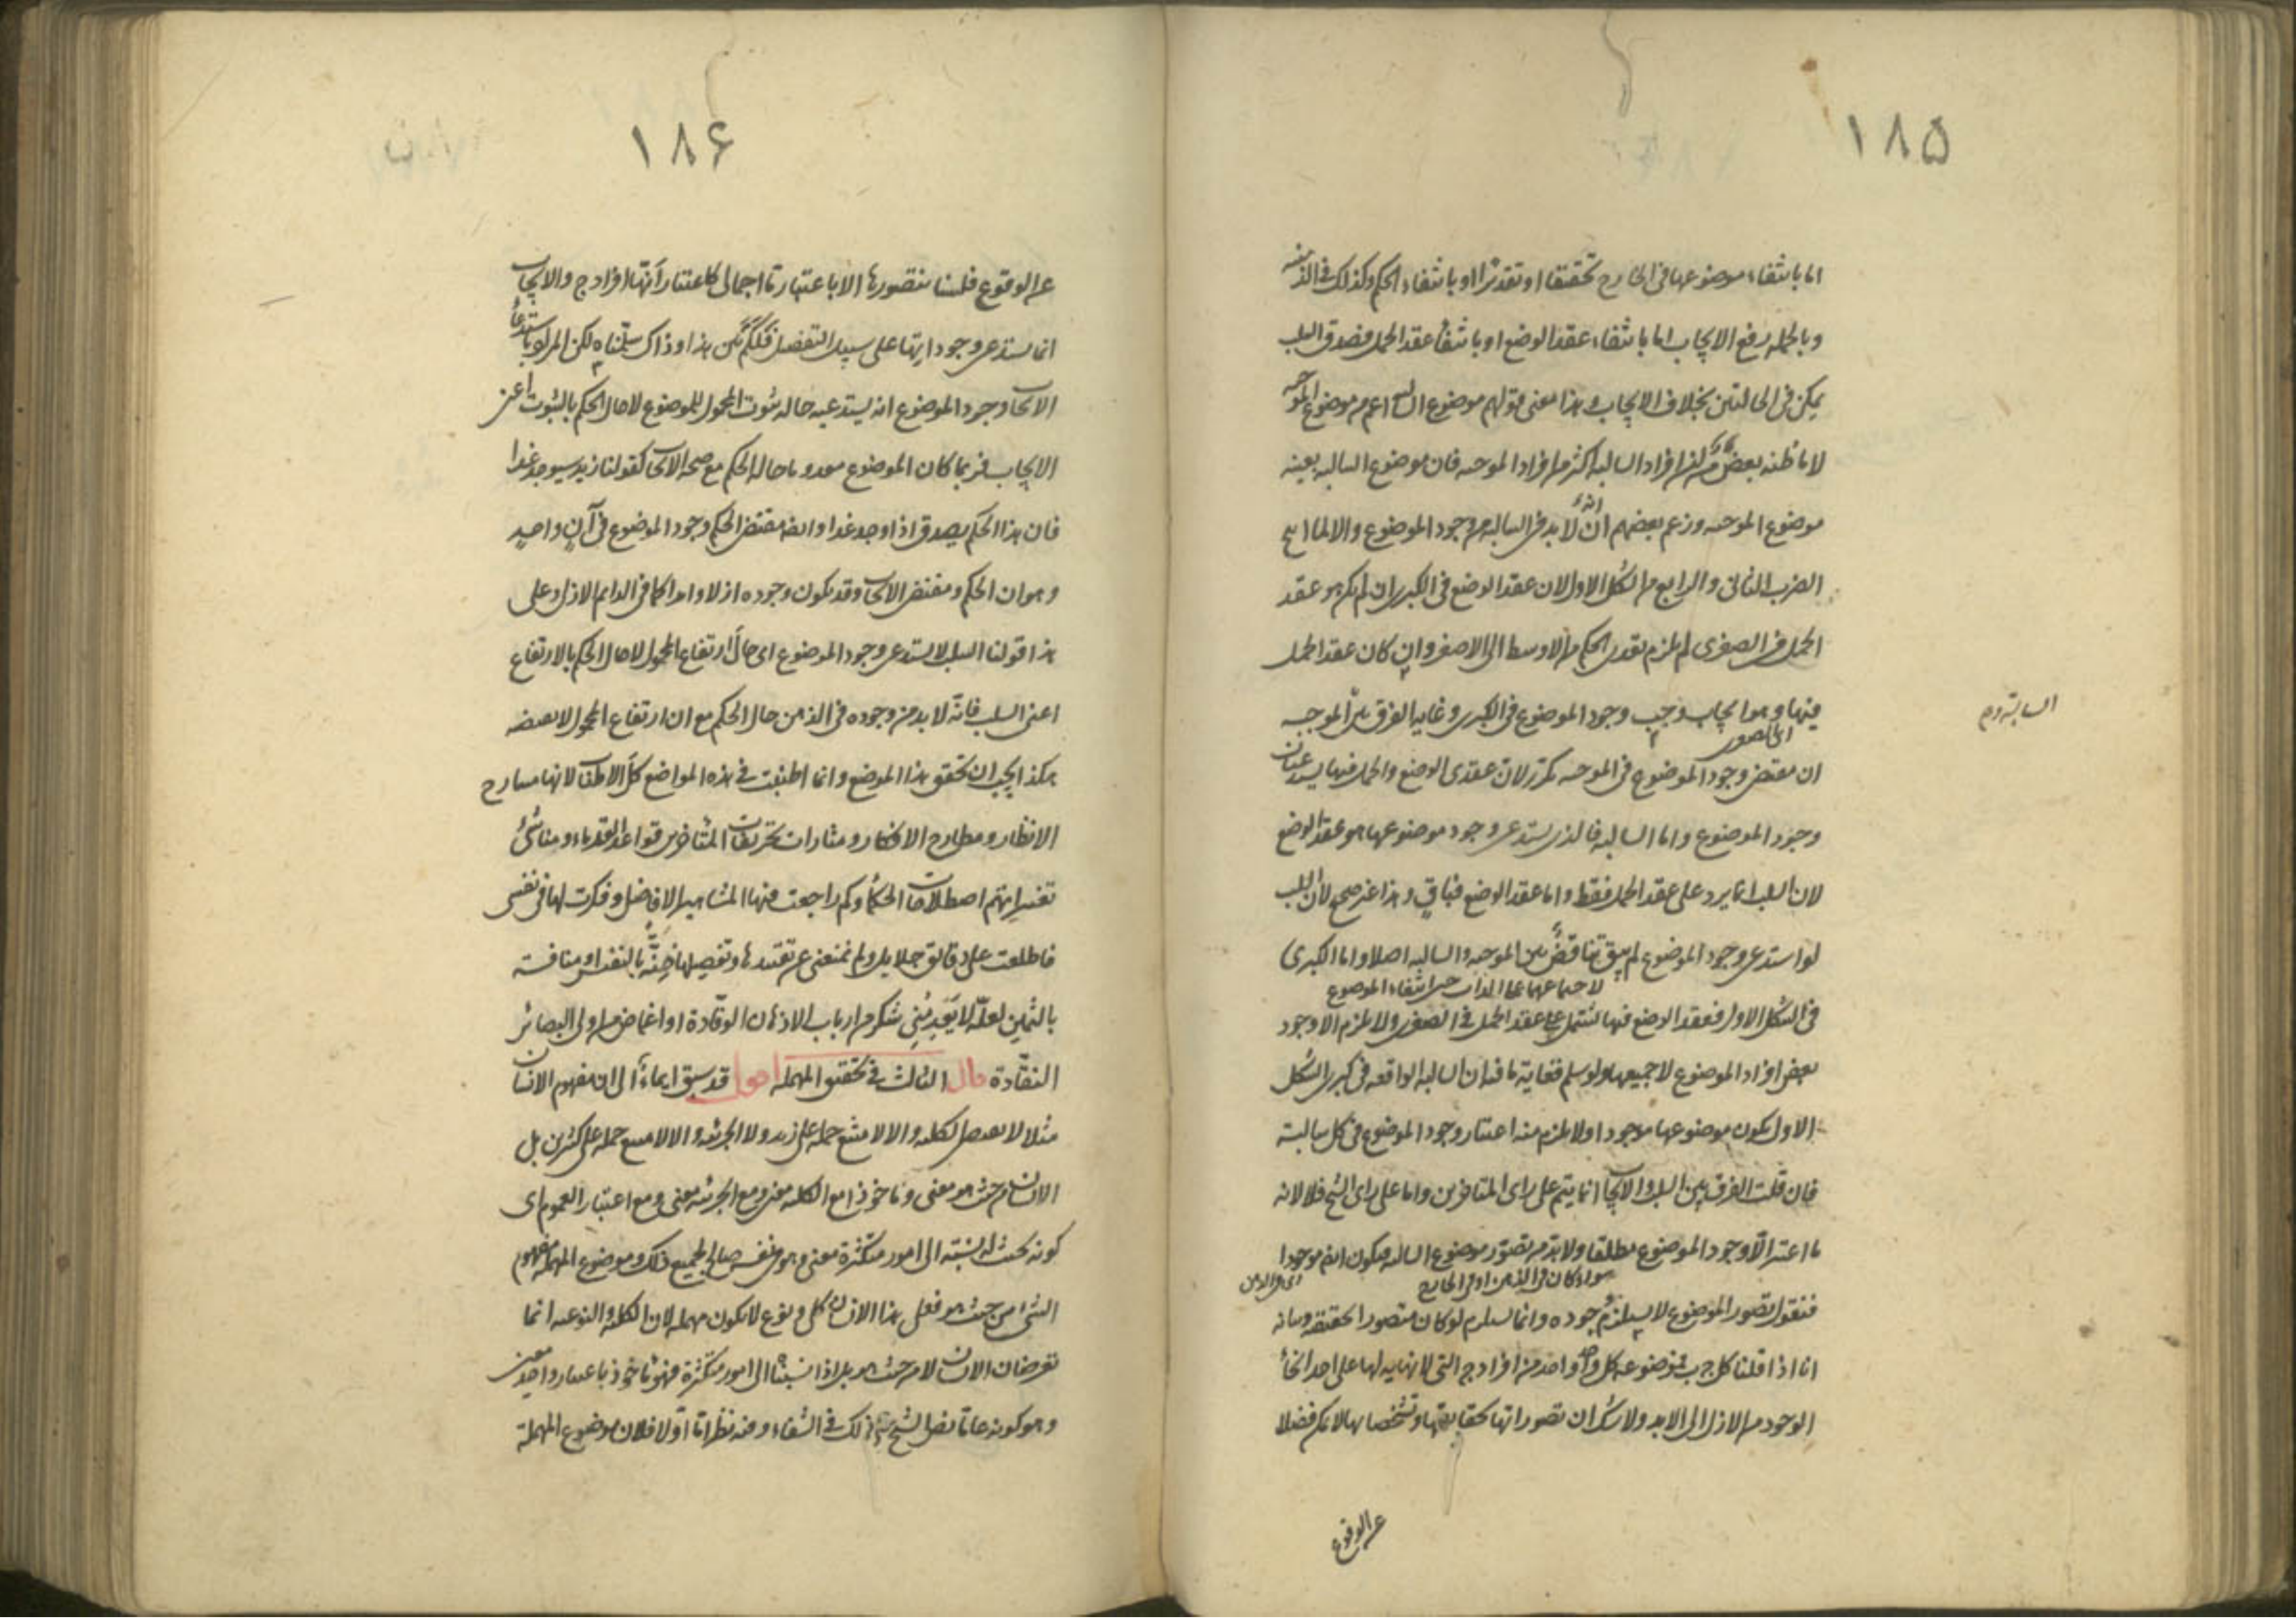 ١٨۵
اما بانتفاء موضوعها فى الخارج تحقيقا او تقديرا او بانتفاء الحكم وكذلك فى الذهنية
وبالجملة رفع الايجاب اما بانتفاء عقد الوضع او بانتفاء عقد الحمل فصدق السلب
يمكن فى الحالتين بخلاف الايجاب وهذا معنى قولهم موضوع السالبة اعم من موضوع الموجبة
لا ما ظنه بعضهم من ان افراد السالبة اكثر من افراد الموجبة فان موضوع السالبة بعينه
موضوع الموجبة وزعم بعضهم انه لا بد فى السالبة من وجود الموضوع والا لما انتج
الضرب الثانى والرابع من الشكل الاول لان عقد الوضع فى الكبرى ان لم يكن هو عقد
الحمل فى الصغرى لم يلزم تعدى الحكم من الاوسط الى الاصغر وان كان عقد الحمل
فيها وهو ايجاب وجب وجود الموضوع فى الكبرى وغاية الفرق بين الموجبة
السالبة وم
المحصورة
ان مقتضى وجود الموضوع فى الموجبة مكرر لان عقدى الوضع والحمل فيها يستدعيان
وجود الموضوع واما السالبة فالذى يستدعى وجود موضوعها هو عقد الوضع
لان السلب انما يرد على عقد الحمل فقط واما عقد الوضع فباق وهذا غير صحيح لان السلب
لو استدعى وجود الموضوع لم يبق تناقض بين الموجبة والسالبة اصلا واما الكبرى
لاجتماعهما على الكذب حين انتفاء الموضوع
فى الشكل الاول فعقد الوضع فيها يشتمل على عقد الحمل فى الصغرى ولا يلزم الا وجود
بعض افراد الموضوع لا جميعها ولو سلم فغاية ما فيه ان السالبة الواقعة فى كبرى الشكل
الاول يكون موضوعها موجودا ولا يلزم منه اعتبار وجود الموضوع فى كل سالبة
فان قلت الفرق بين السلب والايجاب انما يتم على راى المتاخرين واما على راى الشيخ فلا لانه
ما اعتبر الا وجود الموضوع مطلقا ولا بد من تصور موضوع السالبة فيكون ايضا موجودا
سواء كان فى الذهن او فى الخارج
اى فى الذهن
فنقول تصور الموضوع لا يستلزم وجوده وانما يستلزم لو كان متصورا بحقيقته وبيانه
انا اذا قلنا كل ج ب فموضوعه كل واحد واحد من افراد ج التى لا نهاية لها على احد انحاء
الوجود من الازل الى الابد ولا شك ان تصوراتها بحقايقها وتشخصاتها لا يمكن فضلا
عن الوقوع
١٨۶
عن الوقوع فلسنا نتصورها الا باعتبار ما اجمالى كاعتبار انها افراد ج والايجاب
انما يستدعى وجوداتها على سبيل التفصيل فلم يكن هذا وذاك سلمناه لكن المراد باستدعاء
الايجاب وجود الموضوع انه يستدعيه حالة ثبوت المحمول للموضوع لا حال الحكم بالثبوت اعنى
الايجاب فربما كان الموضوع معدوما حالة الحكم مع صحة الايجاب كقولنا زيد سيوجد غدا
فان هذا الحكم يصدق اذا وجد غدا وايضا مقتضى الحكم وجود الموضوع فى آن واحد
وهو ان الحكم ومقتضى الايجاب وقد يكون وجوده ازلا وابدا كما فى الدايم الازلى وعلى
هذا قولنا السلب لا يستدعى وجود الموضوع اى حال ارتفاع المحمول لا حال الحكم بالارتفاع
اعنى السلب فانه لا بد من وجوده فى الذهن حال الحكم مع ان ارتفاع المحمول لا يقتضيه
هكذا يجب ان تحقق هذا الموضع وانما اطنبت فى هذه المواضع كل الاطناب لانها مسارح
الانظار ومطارح الافكار ومثارات تحريفات المتاخرين قواعد القدماء ومناشئ
تغييراتهم اصطلاحات الحكماء وكم راجعت فيها المشاهير الافاضل وفكرت لها فى نفسى
فاطلعت على دقائق جلايل ولم يمنعنى عن تقييدها وتفصيلها ضنة بالنفيس او منافسة
بالثمين لعله لا يعدمنى شكر من ارباب الاذهان الوقادة او اغماض من اولى البصائر
النقادة قال الثالث فى تحقيق المهملة اقول قد سبق ايماء الى ان مفهوم الانسان
مثلا لا يقتضى الكلية والا لامتنع حمله على زيد ولا الجزئية والا لامتنع حمله على كثيرين بل
الانسان من حيث هو معنى وماخوذا مع الكلية معنى ومع الجزئية معنى ومع اعتبار العموم اى
كونه بحيث له نسبة الى امور متكثرة معنى وهو فى نفسه صالح لجميع ذلك وموضوع المهملة مفهوم
الشئ من حيث هو فعلى هذا الانسان كلى ونوع لا يكون مهملة لان الكلية والنوعية انما
تعرضان الانسان لا من حيث هو بل اذا نسبناه الى امور متكثرة فهو ماخوذ باعتبار واحد معين
وهو كونه عاما نص الشيخ على ذلك فى الشفاء وفيه نظر اما اولا فلان موضوع المهملة